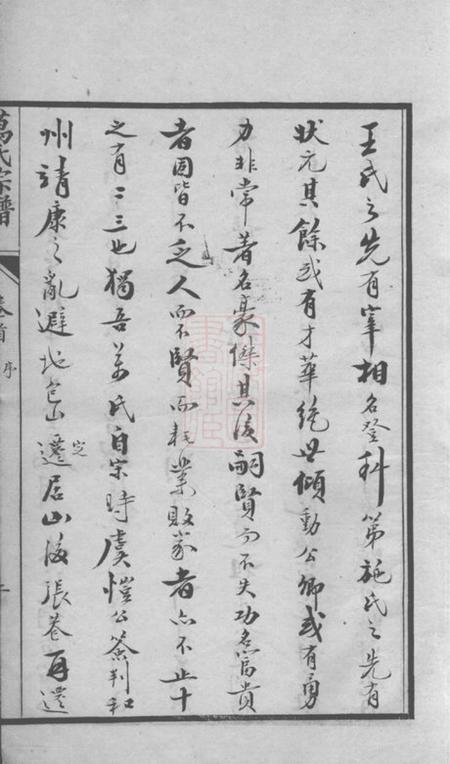 王氏之先有宰相名登科第施氏之先有
状元其餘或有才華絶世傾動公卿或有勇
力非常著名豪傑其後嗣賢而不失功名富貴
者固皆不乏人而不賢而耗業敗家者亦不止十
之有二三也獨吾萬氏自宋時虞愷公簽判和
州靖康之亂避地包山遷定居山後張巷再遷
萬氏宗譜
卷首 序